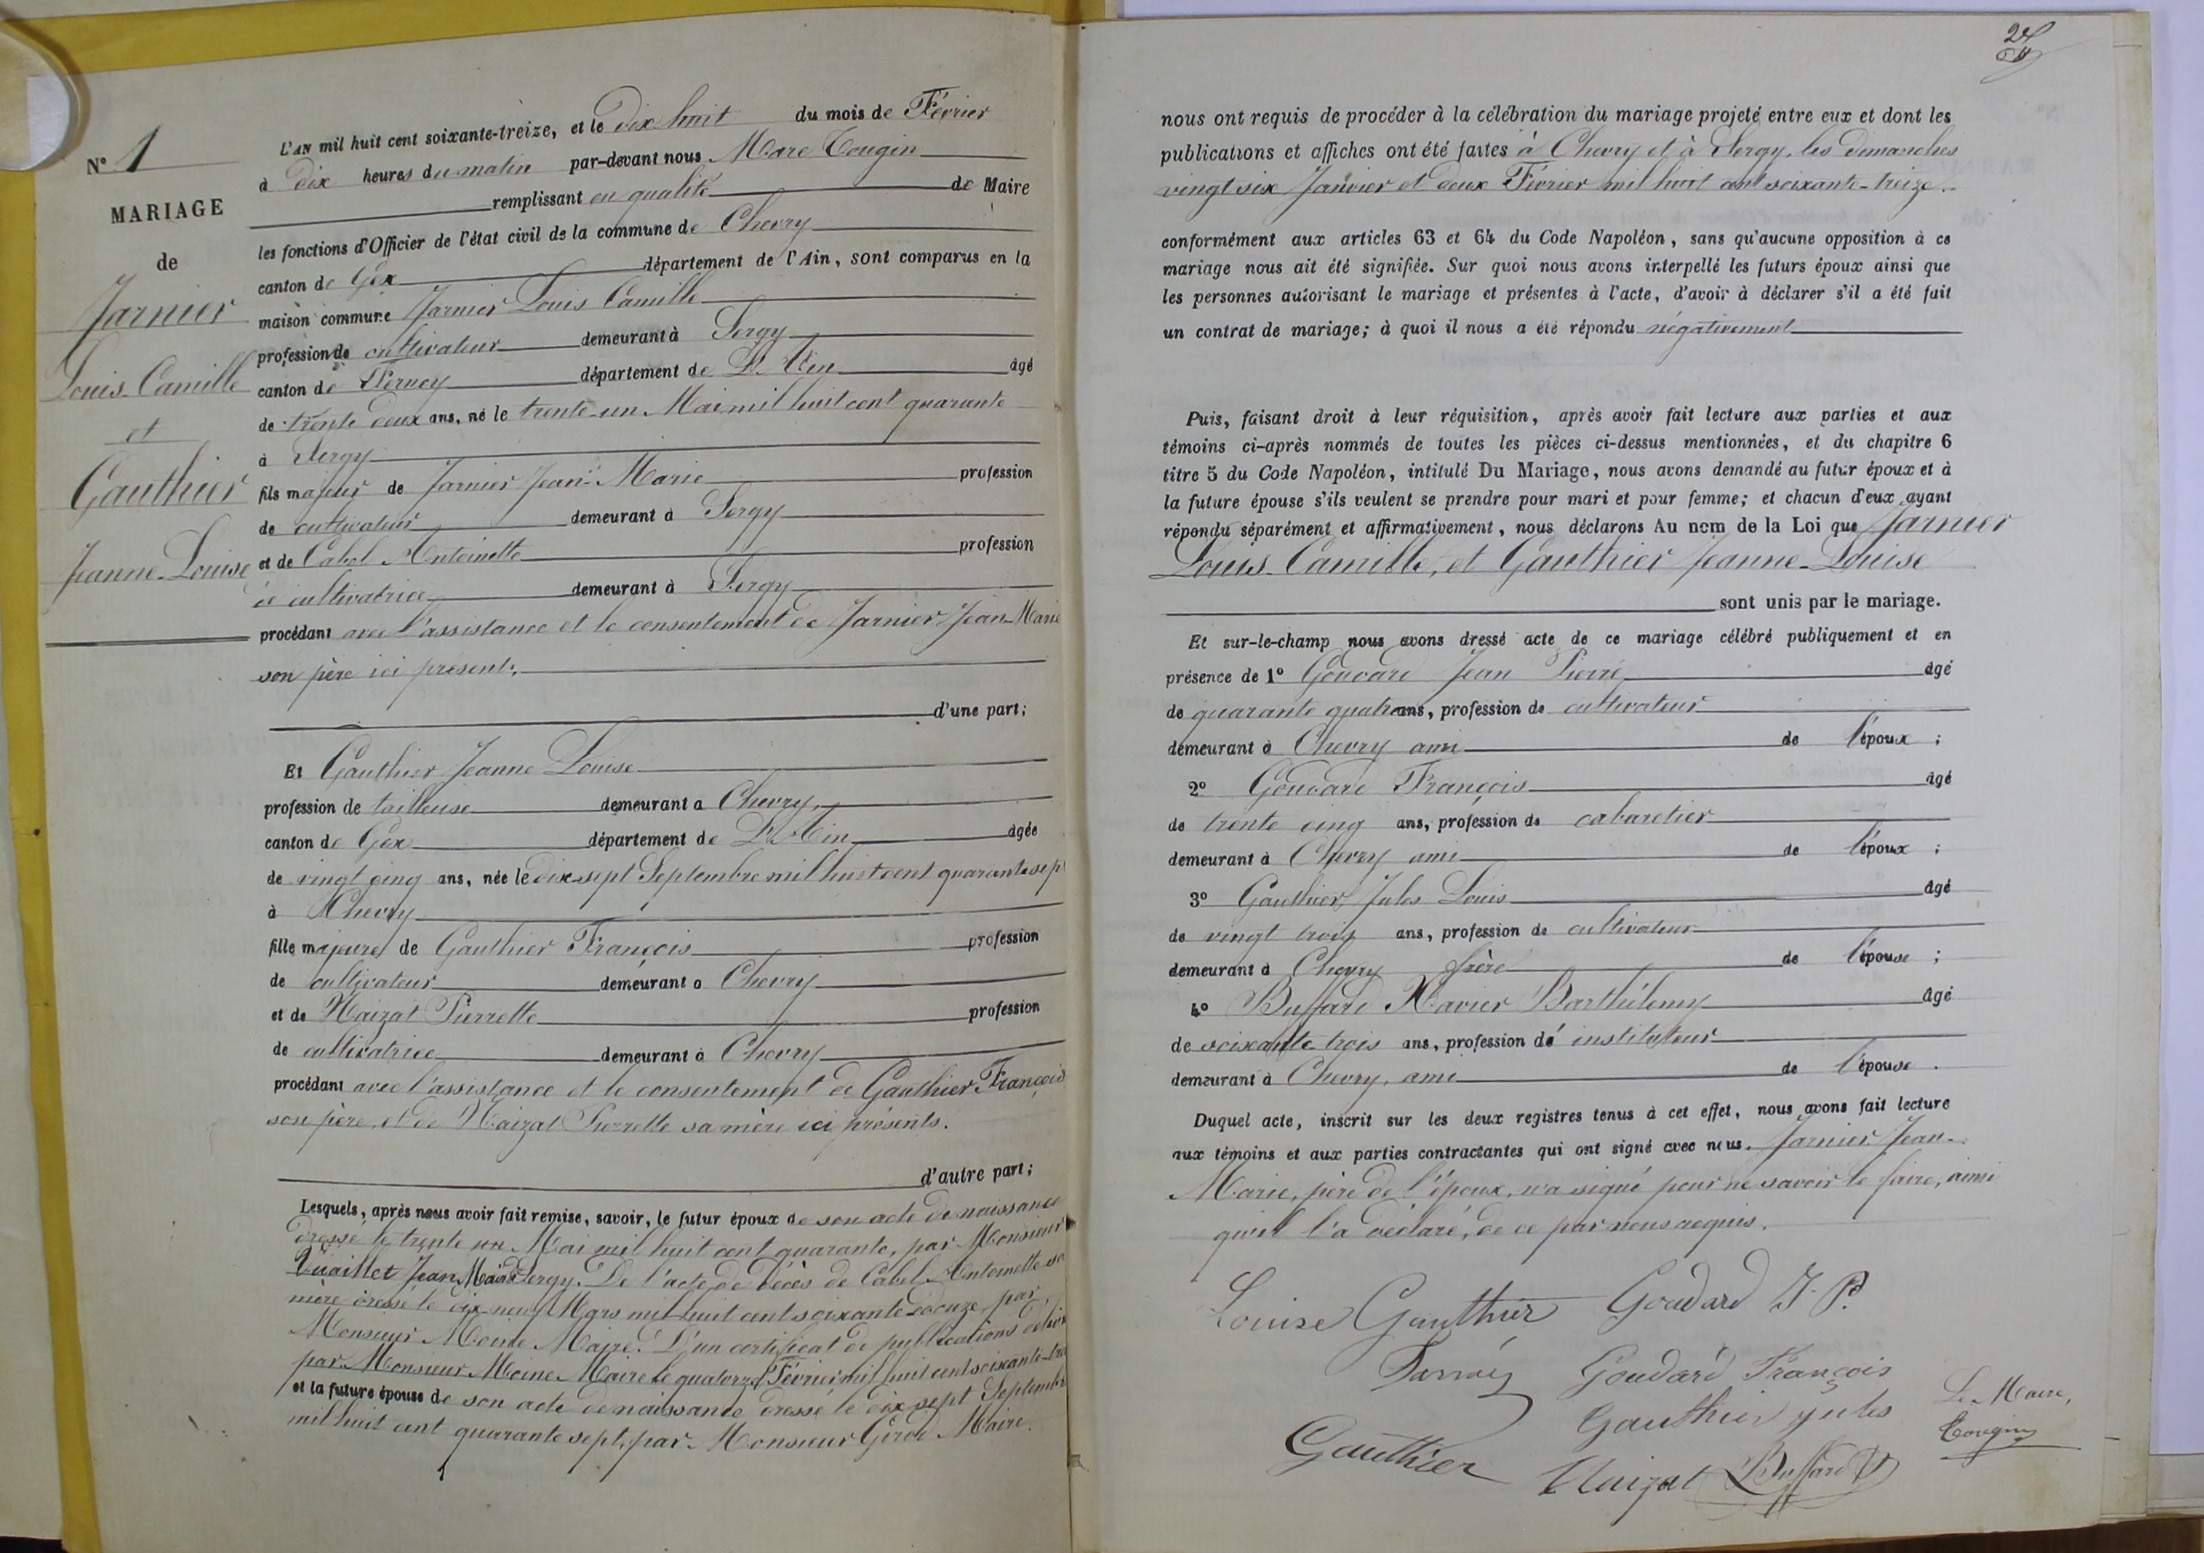 N° 1
MARIAGE
de
Jarnier
Louis-Camille
et
Gauthier
Jeanne-Louise
L'AN mil huit cent soixante-treize, et le dix huit du mois de Février
à dix heures du matin par-devant nous Marc Tougin
remplissant en qualité de Maire
les fonctions d'Officier de l'état civil de la commune de Chevry
canton de Gex département de l'Ain, sont comparus en la
maison commune Jarnier Louis Camille
profession de cultivateur demeurant à Sergy
canton de Ferney département de L'Ain âgé
de trente deux ans, né le trente-un Mai mil huit cent quarante
à Sergy
fils majeur de Jarnier Jean-Marie profession
de cultivateur demeurant à Sergy
et de Cabel Antoinette profession
de cultivatrice demeurant à Sergy
procédant avec l'assistance et le consentement de Jarnier Jean-Marie
son père ici présent.
d'une part;
Et Gauthier Jeanne Louise
profession de tailleuse demeurant à Chevry,
canton de Gex département de L'Ain âgée
de vingt cinq ans, née le dix-sept Septembre mil huit cent quarante sept
à Chevry
fille majeure de Gauthier François profession
de cultivateur demeurant à Chevry
et de Naizat Pierrette profession
de cultivatrice demeurant à Chevry
procédant avec l'assistance et le consentement de Gauthier François
son père, et de Naizat Pierrette sa mère ici présents.
d'autre part;
Lesquels, après nous avoir fait remise, savoir, le futur époux de son acte de naissance
dressé le trente un Mai mil huit cent quarante, par Monsieur
Jean Maire Sergy. De l'acte de décès de Cabel Antoinette sa
mère dressé le dix neuf Mars mil huit cent soixante douze, par
Monsieur Moine Maire. D'un certificat de publications délivré
par Monsieur Moine Maire le quatorze Février mil huit cent soixante-tre
et la future épouse de son acte de naissance dressé le dix sept Septembre
mil huit cent quarante sept, par Monsieur Girod Maire.
nous ont requis de procéder à la célébration du mariage projeté entre eux et dont les
publications et affiches ont été faites à Chevry et à Sergy, les dimanches
vingt six Janvier et deux Février mil huit cent soixante-treize.
conformément aux articles 63 et 64 du Code Napoléon, sans qu'aucune opposition à ce
mariage nous ait été signifiée. Sur quoi nous avons interpellé les futurs époux ainsi que
les personnes autorisant le mariage et présentes à l'acte, d'avoir à déclarer s'il a été fait
un contrat de mariage; à quoi il nous a été répondu négativement
Puis, faisant droit à leur réquisition, après avoir fait lecture aux parties et aux
témoins ci-après nommés de toutes les pièces ci-dessus mentionnées, et du chapitre 6
titre 5 du Code Napoléon, intitulé Du Mariage, nous avons demandé au futur époux et à
la future épouse s'ils veulent se prendre pour mari et pour femme; et chacun d'eux ayant
répondu séparément et affirmativement, nous déclarons Au nom de la Loi que Jarnier
Louis-Camille, et Gauthier Jeanne-Louise
sont unis par le mariage.
Et sur-le-champ nous avons dressé acte de ce mariage célébré publiquement et en
présence de 1° Goudard Jean Pierre âgé
de quarante quatre ans, profession de cultivateur
demeurant à Chevry ami de l'époux ;
2° Goudard François âgé
de trente cinq ans, profession de cabaretier
demeurant à Chevry ami de l'époux ;
3° Gauthier Jules Louis âgé
de vingt trois ans, profession de cultivateur
demeurant à Chevry frère de l'épouse ;
4° Buffard Xavier Barthélemy âgé
de soixante trois ans, profession d'instituteur
demeurant à Chevry, ami de l'épouse .
Duquel acte, inscrit sur les deux registres tenus à cet effet, nous avons fait lecture
aux témoins et aux parties contractantes qui ont signé avec nous. Jarnier Jean-
Marie, père de l'époux, n'a signé pour ne savoir le faire, ainsi
qu'il l'a déclaré, de ce par nous requis.
Louise Gauthier Goudard J. P.
Goudard François
Gauthier jules
Le Maire,
Tougin
Gauthier Naizat Buffard